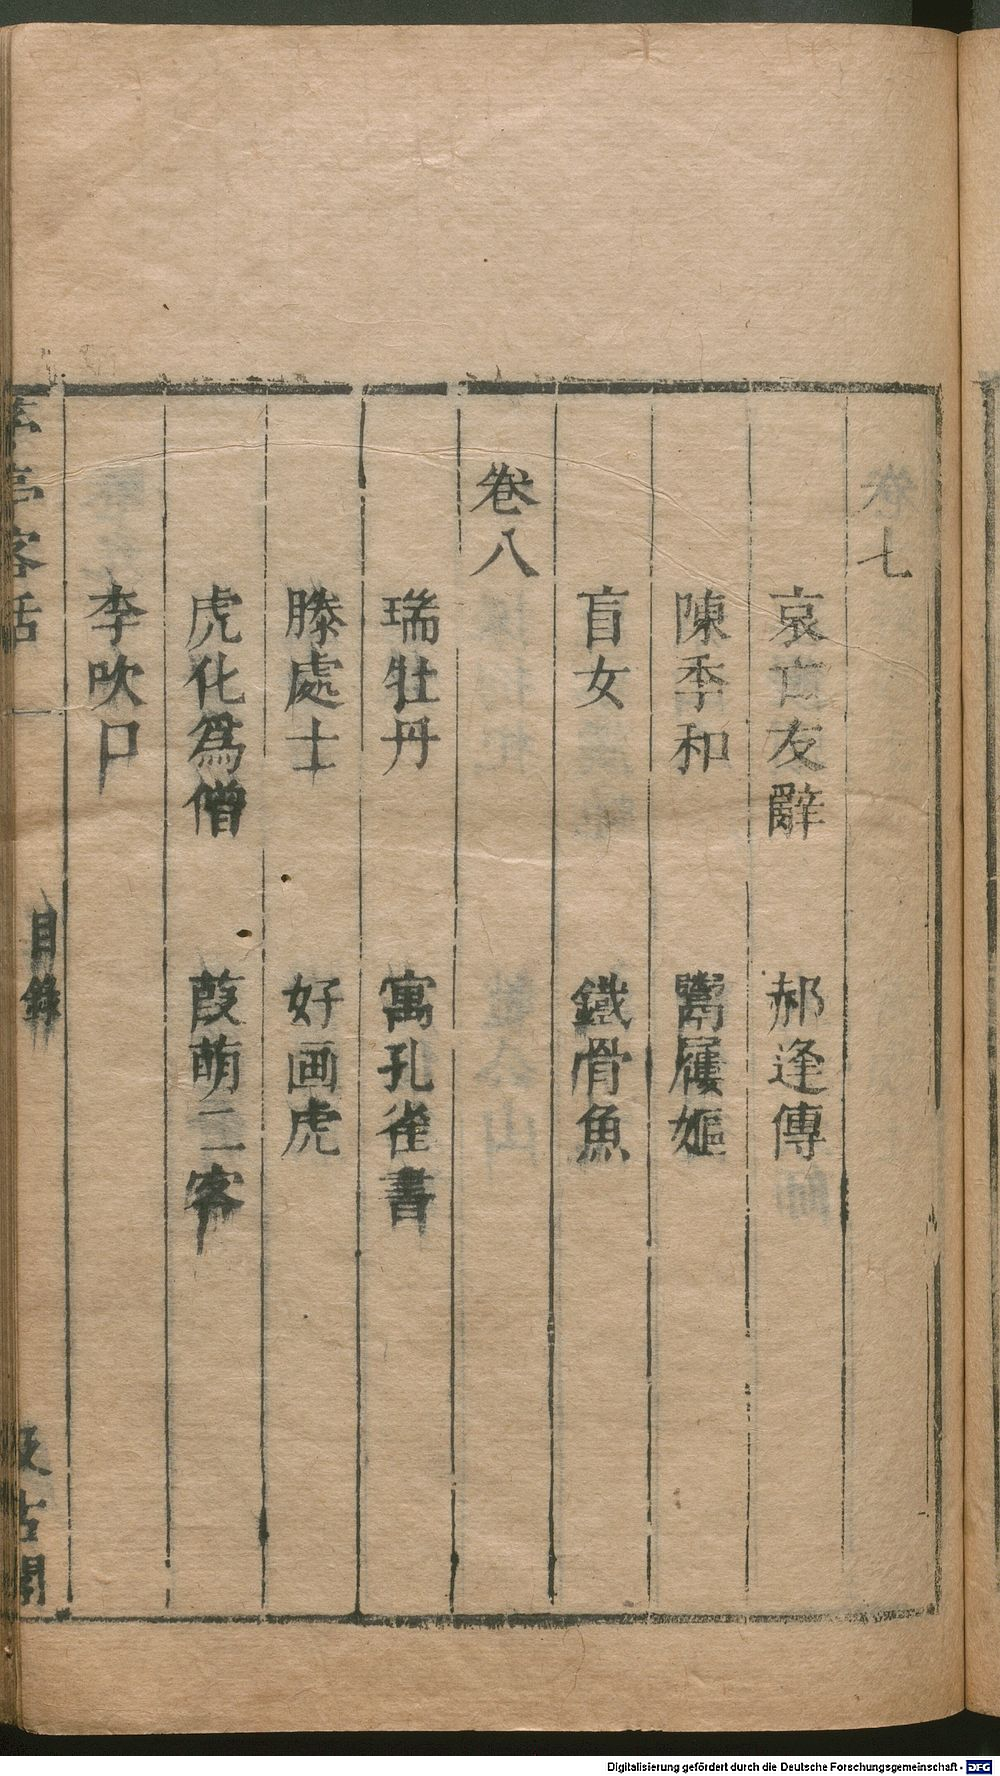 卷七
哀亡友辭　郝逢傳
陳季和　鬻屨嫗
盲女　鐵骨魚
卷八
瑞牡丹　寓孔雀書
滕處士　好画虎
虎化為僧　葭萌二客
李吹口
亭客話
目錄
汲古閣
Digitalisierung gefördert durch die Deutsche Forschungsgemeinschaft - DFG